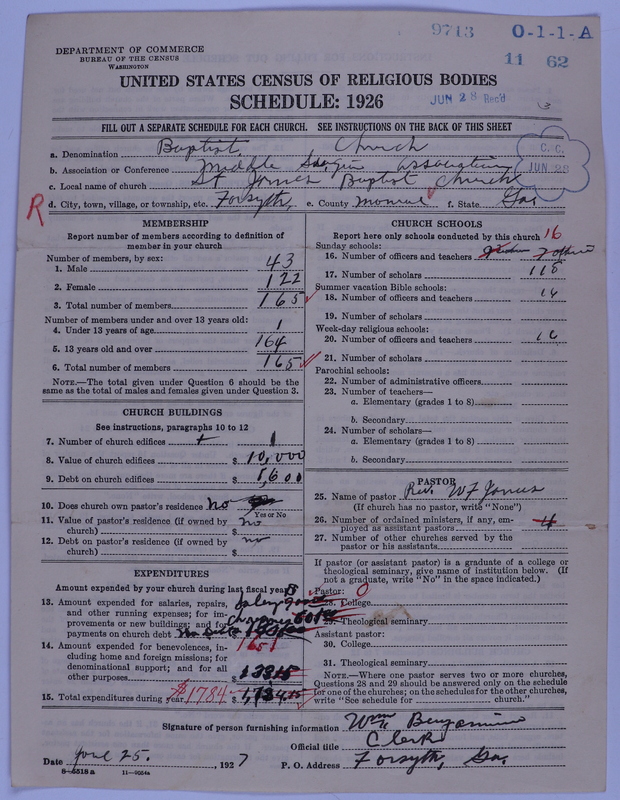 9713 O-1-1-A
DEPARTMENT OF COMMERCE
BUREAU OF THE CENSUS
WASHINGTON
11 62
UNITED STATES CENSUS OF RELIGIOUS BODIES
SCHEDULE: 1926
JUN 28 Rec'd
FILL OUT A SEPARATE SCHEDULE FOR EACH CHURCH. SEE INSTRUCTIONS ON THE BACK OF THIS SHEET
C. C.
JUN 28
a. Denomination Baptist Church
b. Association or Conference Middle Association
c. Local name of church St James Baptist Church
R
d. City, town, village, or township, etc. Forsyth, e. County Monroe f. State Ga
MEMBERSHIP
Report number of members according to definition of
member in your church
Number of members, by sex:
1. Male 43
2. Female 122
3. Total number of members 165
Number of members under and over 13 years old:
4. Under 13 years of age 1
5. 13 years old and over 164
6. Total number of members 165
NOTE.—The total given under Question 6 should be the
same as the total of males and females given under Question 3.
CHURCH BUILDINGS
See instructions, paragraphs 10 to 12
7. Number of church edifices 1
8. Value of church edifices $ 10,000
9. Debt on church edifices $ 1,600
10. Does church own pastor's residence No
Yes or No
11. Value of pastor's residence (if owned by
church) $ no
12. Debt on pastor's residence (if owned by
church) $ no
EXPENDITURES
Amount expended by your church during last fiscal year:
13. Amount expended for salaries, repairs,
and other running expenses; for im-
provements or new buildings; and for
payments on church debt
1651
14. Amount expended for benevolences, in-
cluding home and foreign missions; for
denominational support; and for all
other purposes $
15. Total expenditures during year $1784
CHURCH SCHOOLS
Report here only schools conducted by this church
Sunday schools: 16
16. Number of officers and teachers
17. Number of scholars 118
Summer vacation Bible schools:
18. Number of officers and teachers
19. Number of scholars
Week-day religious schools:
20. Number of officers and teachers
21. Number of scholars
Parochial schools:
22. Number of administrative officers
23. Number of teachers—
a. Elementary (grades 1 to 8)
b. Secondary
24. Number of scholars—
a. Elementary (grades 1 to 8)
b. Secondary
PASTOR
25. Name of pastor Rev. W F
(If church has no pastor, write "None")
26. Number of ordained ministers, if any, em-
ployed as assistant pastors 4
27. Number of other churches served by the
pastor or his assistants
If pastor (or assistant pastor) is a graduate of a college or
theological seminary, give name of institution below. (If
not a graduate, write "No" in the space indicated.)
Pastor: 0
28. College
29. Theological seminary
Assistant pastor:
30. College
31. Theological seminary
NOTE.—Where one pastor serves two or more churches,
Questions 28 and 29 should be answered only on the schedule
for one of the churches; on the schedules for the other churches,
write "See schedule for church."
Signature of person furnishing information Wm Benjamin
Official title Clerk
Date June 25. , 1927 P. O. Address Forsyth, Ga.
8—6518 a 11—9554a